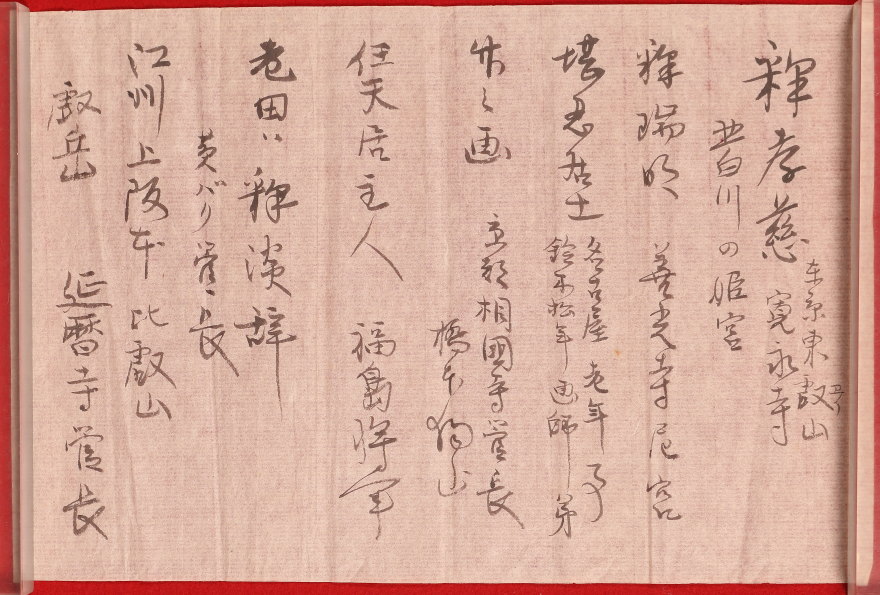 釈孝慈
東京東叡山
寛永寺
北白川の姫宮
釈瑞明 善光寺尼宮
堪忍居士
名古屋 老年
鈴木松年画師 弟
竹之画
京都相国寺管長
橋本独山
任天居主人 福島将軍
老田ハ 釈渓辞
黄バク管長
江州上阪本比叡山
叡岳 延暦寺管長